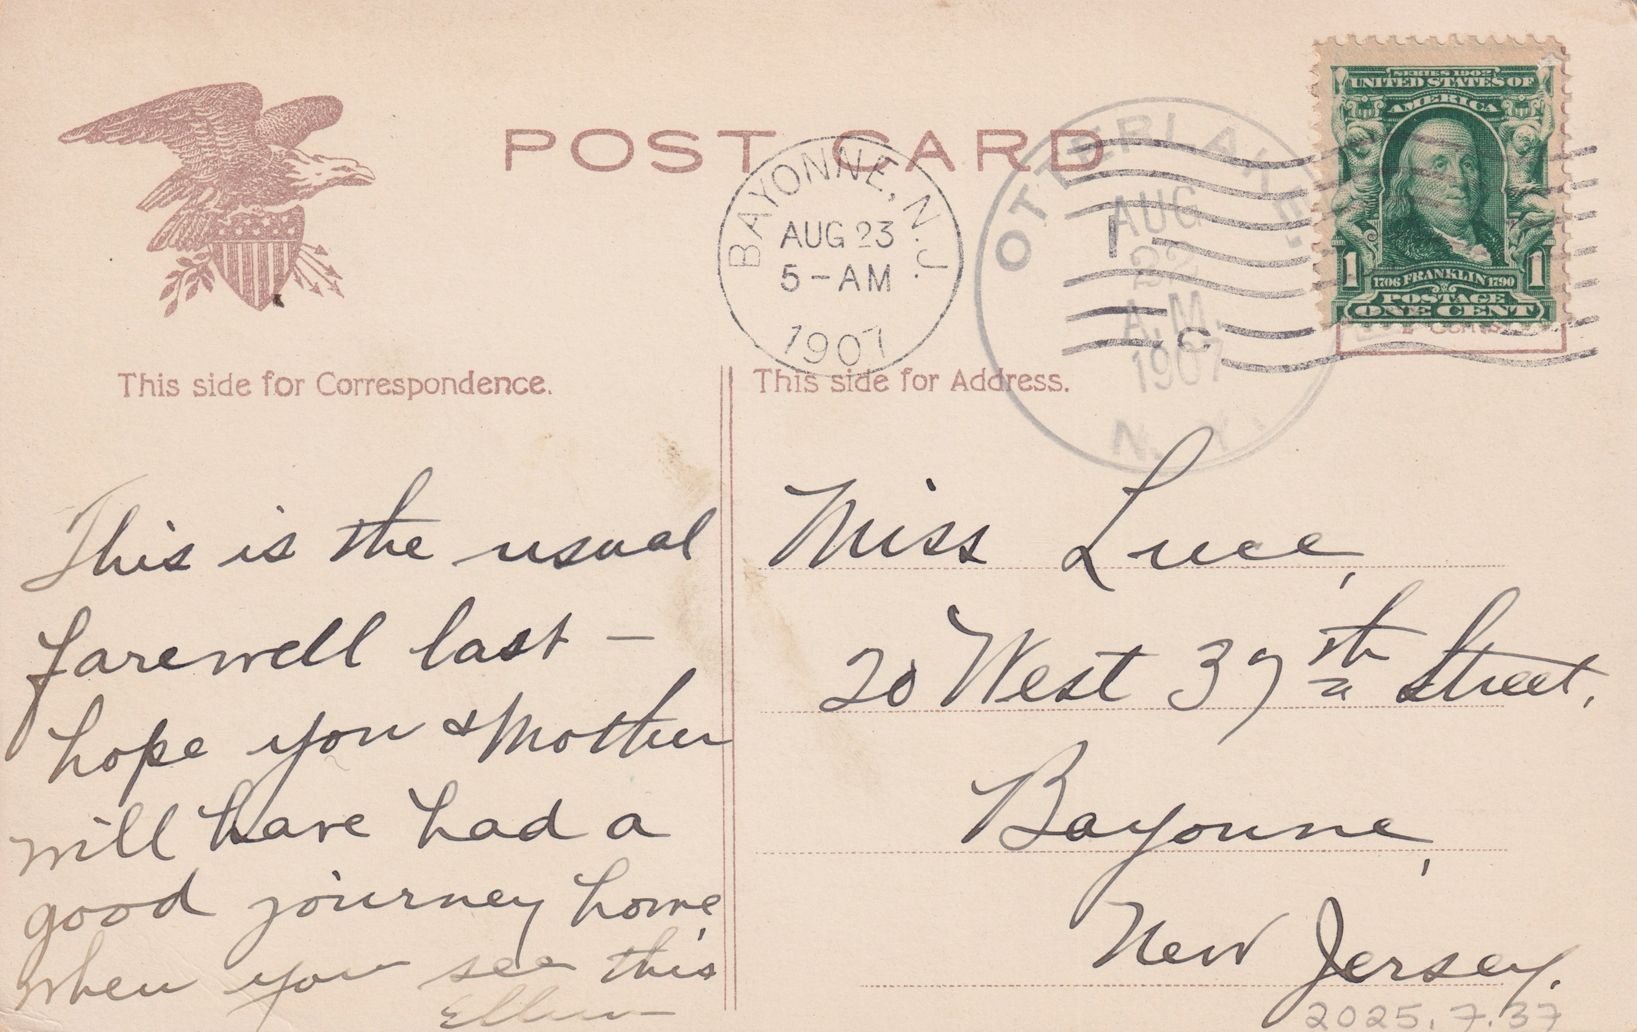 POST CARD
BAYONNE, N.J.
AUG 23
5-AM
1907
OTTER LAKE.
AUG
22
A.M.
1907
N. Y.
1
C
SERIES 1902
UNITED STATES OF
AMERICA
1 1
1706 FRANKLIN 1790
POSTAGE
ONE CENT
This side for Correspondence.
This is the usual
farewell last –
hope you & Mother
will have had a
good journey home,
when you see this
Ellen
This side for Address.
Miss Luce,
20 West 37th Street,
Bayonne,
New Jersey.
2025.7.37